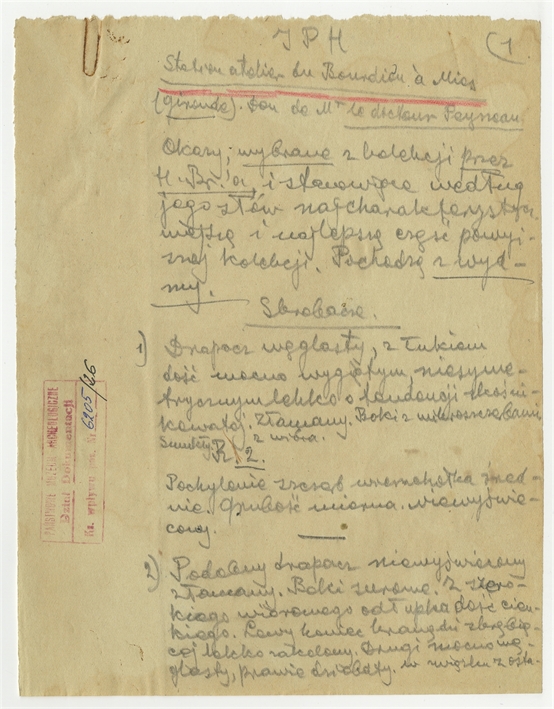 IPH
(1
Station atelier du Bourdiéu à Mios
(Gironde). Don de Mr le docteur Peyneau.
Okazy, wybrane z kolekcji przez
H. Br.'a, i stanowiące według
jego słów najcharakterystycz
niejszą i najlepszą część powyż-
szej kolekcji. Pochodzą z wyd-
my.
Skrobacze.
1) Drapacz węglasty, z łukiem
dość mocno wygiętym niesyme-
trycznym lekko o tendencji
Złamany. Boki z mikroszczerbami
z wióra.
R. 2.
Pochylenie szczerb wierzchołka śred-
nie. Grubość mierna. Niewyświe-
cony.
2) Podobny drapacz niewyświecony
złamany. Boki surowe. Z szero-
kiego wiórowego odłupka dość cien-
kiego. Lewy koniec krawędzi
lekko zatępiony. Drugi mocno wę-
glasty, prawie dziobaty. w związku z
PAŃSTWOWE MUZEUM ARCHEOLOGICZNE
Dział Dokumentacji
Nr. wpływu Nr. 6205/26